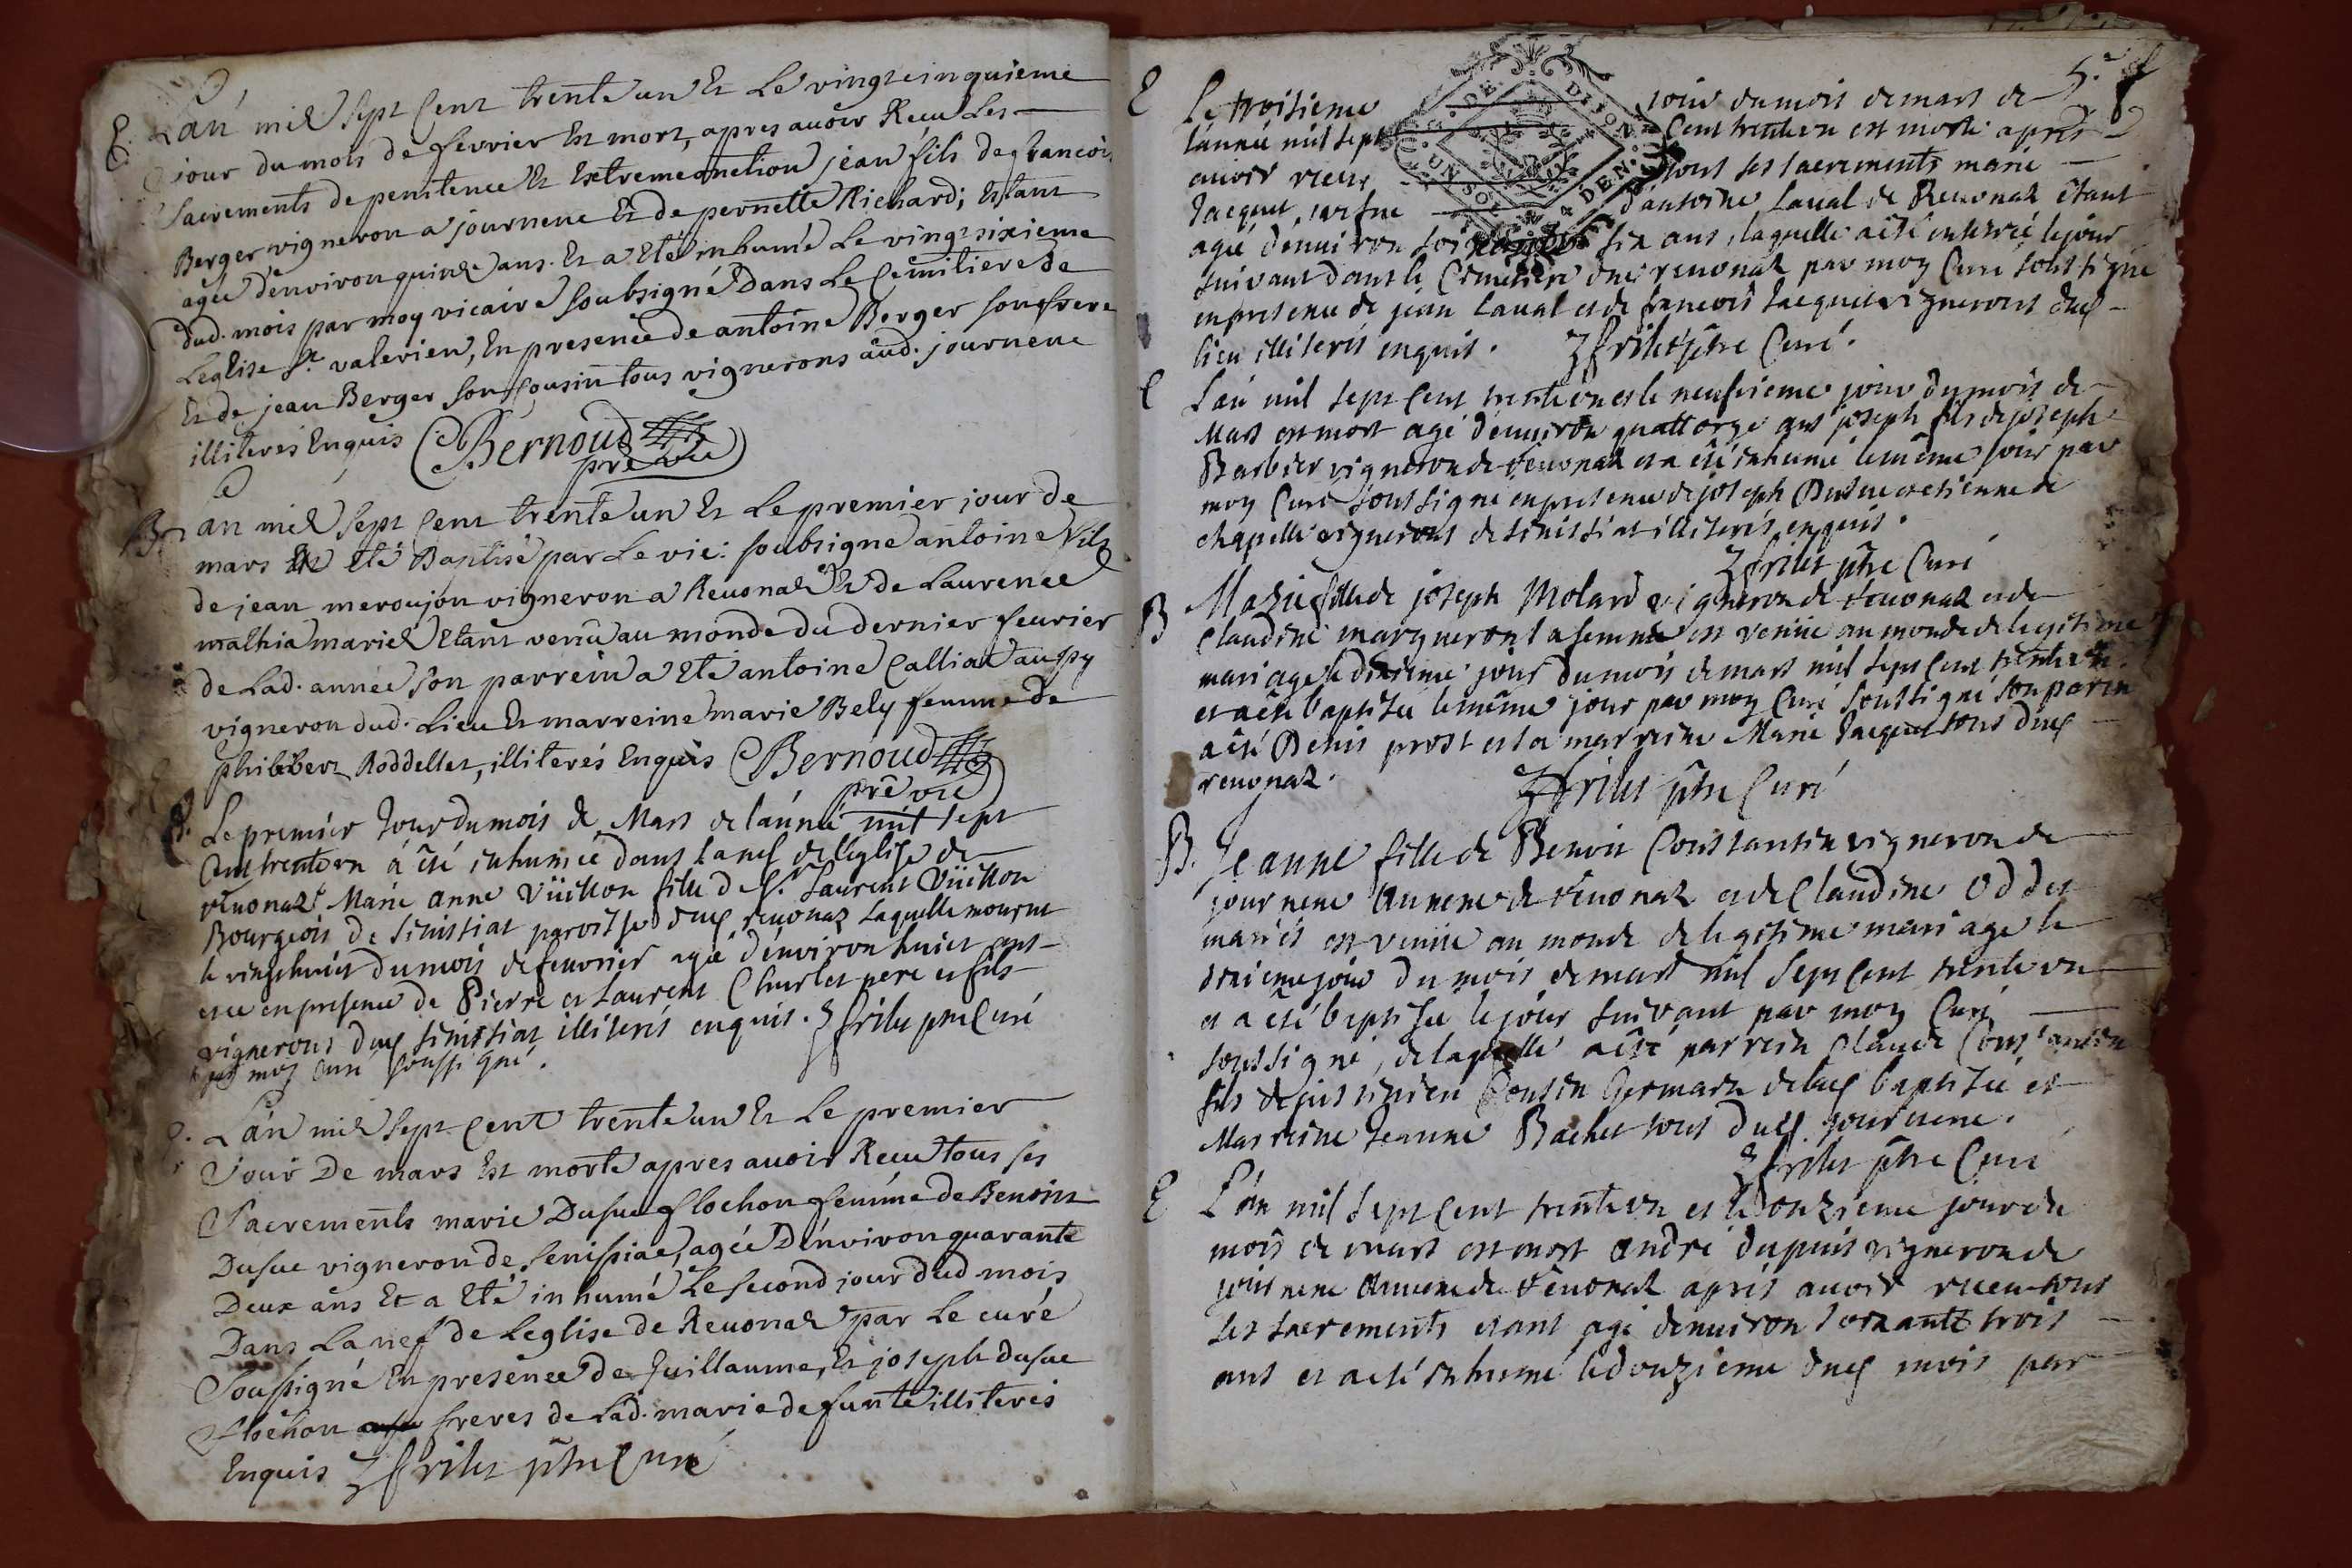 E. L'an mil sept cent trente un Et Le vingt cinquieme
jour du mois de fevrier Est mort, apres avoir Receu Les
Sacrements de penitence Et Extremeonction jean fils de francois
Berger vigneron a journene Et de pernette Richard; Estant
agée d'environ quinze ans. Et a Eté inhumé Le vingt sixieme
dud. mois par moy vicaire soubsigné Dans Le Cemitiere de
Leglise St. valerien, En presence de antoine Berger son frere
Et de jean Berger son cousin tous vignerons aud. journene
illiterés Enquis Bernoud
pre vic
B. L'an mil sept cent trente un Et Le premier jour de
mars Est Eté Baptisé par Le vic: soubsigné antoine fils
de jean meroujon vigneron a Reuonaz Et de Laurence
mathia mariez Etant venu au monde du dernier feurier
de Lad. année son parrein a Eté antoine Calliat aussy
vigneron dud. Lieu Et marreine marie Bely femme de
philibert Roddellet, illiterés Enquis Bernoud
pre vic
E. Le premier Jour du mois de Mars de l'année mil sept
Cent trente vn a été inhumée dans la nef de l'église de
reuonaz Marie anne Vüillon fille de Sr. Laurent Vüillon
Bourgeois de Sinissiat paroisse dud. reuonaz laquelle mourut
le vingt huict du mois de feuvrier agée d'environ huict ans
et ce en presence de Pierre et Laurent Churlet pere et fils
vignerons dud. sinissiat illiterés enquis. frilet ptre Curé
par moy curé soussigné.
E. L'an mil sept cent trente un Et Le premier
Jour De mars Est morte apres avoir Receu tous ses
Sacrements marie Dusuc flochon femme de Benoist
Dusuc vigneron de senissiac, agée D'environ quarante
Deux ans Et a Eté inhumé Le second jour dud mois
Dans La nef de Leglise de Reuonaz par Le curé
Soussigné En presence de Guillaume, Et joseph dusuc
flochon freres de Lad. marie defunte illiterés
Enquis frilet ptre Curé
5e f
E Le troisieme jour du mois de mars de
l'année mil sept Cent trente vn est morte après
auoir receu tous les sacrements marie
Jacquet, vefue d'antoine Laual de Reuonaz étant
agée d'enuiron soixante six ans, laquelle a été enterrée le jour
suivant dans le Cimetiere dud. reuonaz par moy Curé soussigné
en presence de jean Laual et de francois Jacquet vignerons dud.
lieu illiterés enquis. frilet ptre Curé.
E L'an mil sept cent trente vn et le neufvieme jour du mois de
Mars est mort agé d'enuiron quattorze ans joseph fils de joseph
Barbier vigneron de reuonaz et a été inhumé le même jour par
moy Curé soussigné en presence de joseph Dusuc et etienne de
chapelle vignerons de sinissiat illiterés enquis.
frilet ptre Curé
B Marie fille de joseph Molard vigneron de reuonaz et de
Claudine margueron sa femme est venue au monde de legitime
mariage le dixieme jour du mois de mars mil sept cent trente vn
et a été baptisée le même jour par moy Curé soussigné son parin
a été Denis prost et sa marreine Marie Jacquet tous dud.
reuonaz. frilet ptre Curé
B. Jeanne fille de Benoit Constantin vigneron de
journene Annexe de reuonaz et de Claudine Oddet
mariés est venue au monde de legitime mariage le
dixieme jour du mois de mars mil sept cent trente vn
et a été baptisée le jour suivant par moy Curé
soussigné, de laquelle a été parrein Claude Constantin
fils de Cousin Germain de lad. baptisée et
Marreine Jeanne Bachet tous dud. journene.
frilet ptre Curé
E L'an mil sept cent trente vn et le onzieme jour du
mois de mars est mort andré dupuis vigneron de
journene Annexe de reuonaz après auoir receu tous
les sacrements etant agé d'enuiron soixante trois
ans et a été inhumé le douzieme dud. mois par